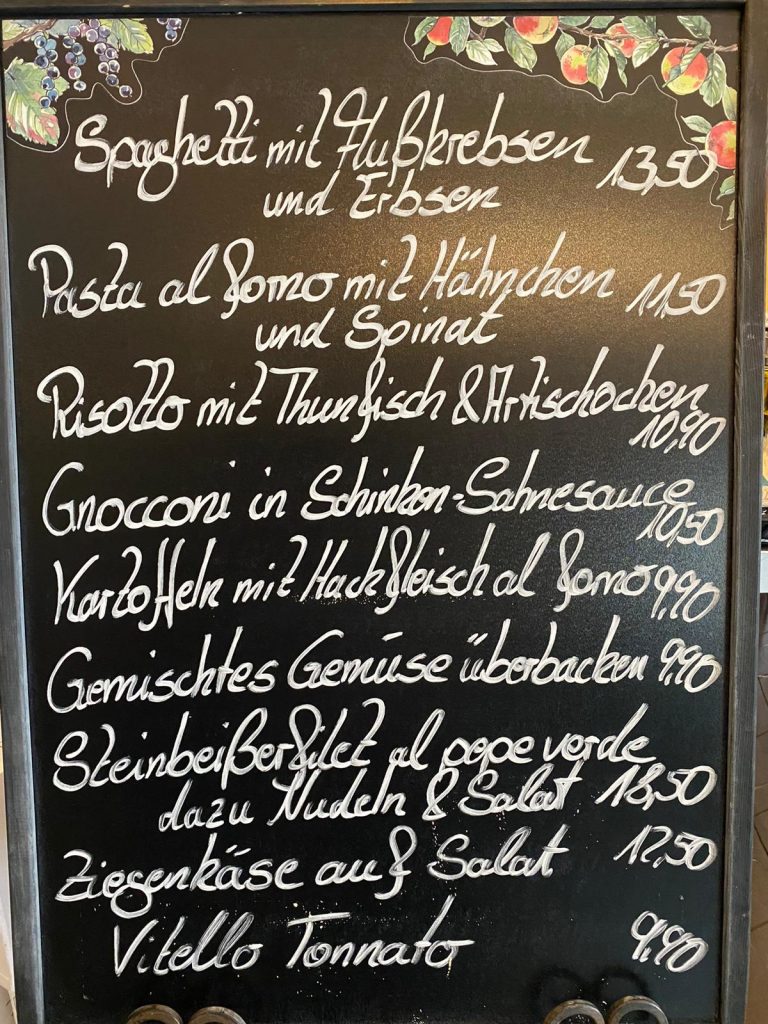 Spaghetti mit Flußkrebsen 13,50
und Erbsen
Pasta al forno mit Hähnchen 11,50
und Spinat
Risotto mit Thunfisch & Artischocken
10,90
Gnocconi in Schinken-Sahnesauce
10,50
Kartoffeln mit Hackfleisch al forno 9,90
Gemischtes Gemüse überbacken 9,90
Steinbeißerfilet al pepe verde
dazu Nudeln & Salat 18,50
Ziegenkäse auf Salat 12,50
Vitello Tonnato 9,90